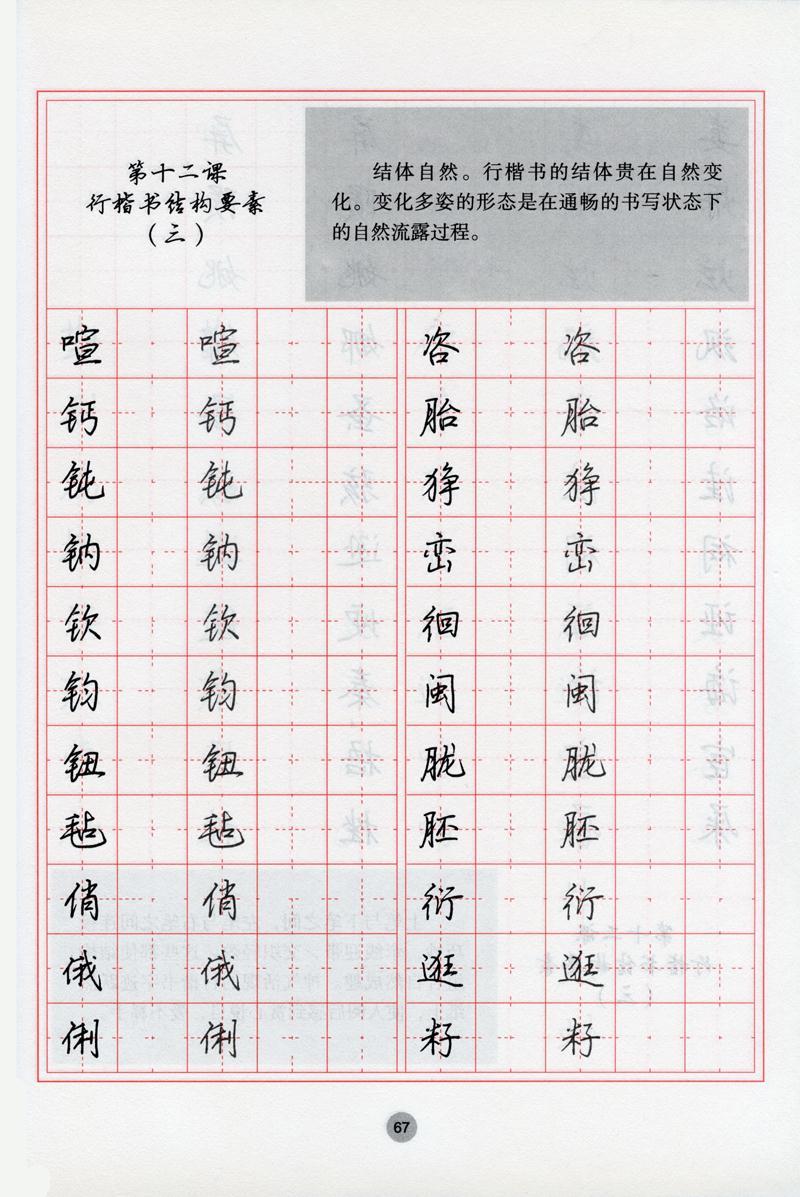 第十二课
行楷书结构要素
（三）
结体自然。行楷书的结体贵在自然变
化。变化多姿的形态是在通畅的书写状态下
的自然流露过程。
喧 喧 咨 咨
钙 钙 胎 胎
钝 钝 狰 狰
钠 钠 峦 峦
钦 钦 徊 徊
钧 钧 闽 闽
钮 钮 胧 胧
毡 毡 胚 胚
俏 俏 衍 衍
俄 俄 逛 逛
俐 俐 籽 籽
67